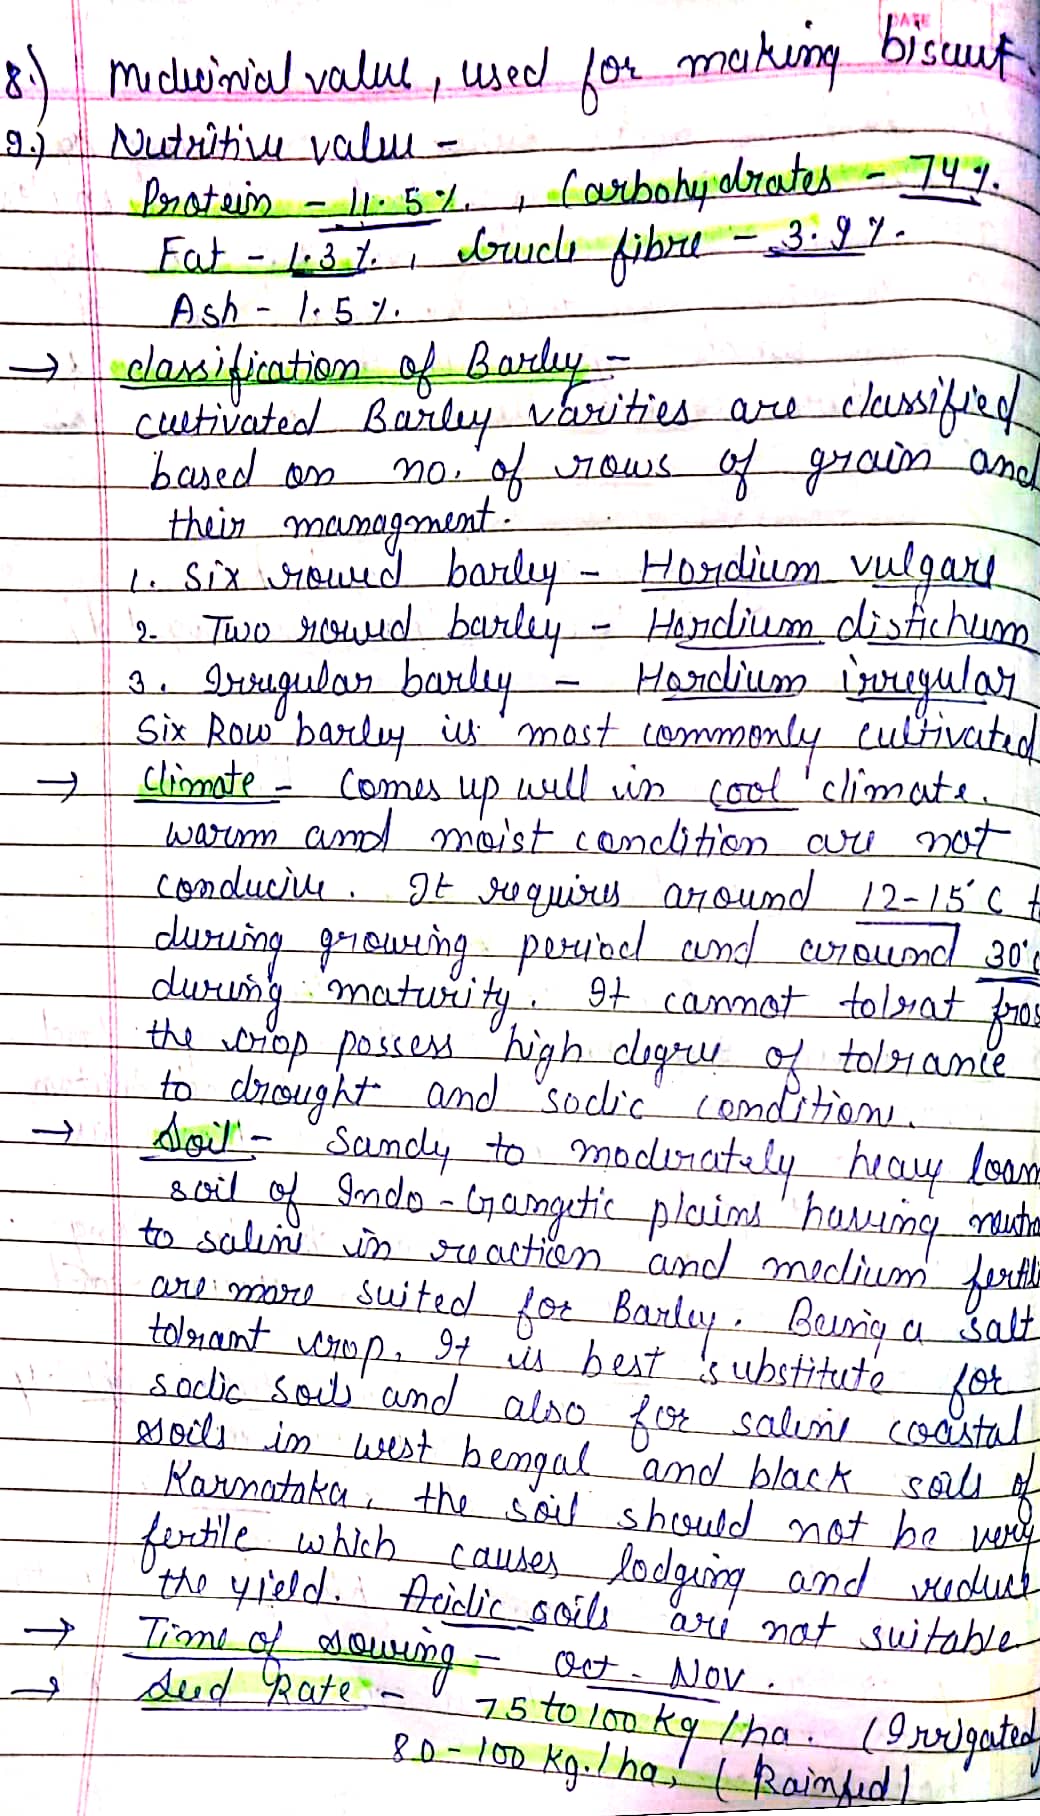 DATE
8.) Medicinial value, used for making biscuit.
9.) Nutritive value -
Protein - 11.5%, Carbohydrates - 74%.
Fat - 1.3%, Crude fibre - 3.9%.
Ash - 1.5%.
→ classification of Barley -
cultivated Barley varities are classified
based on no. of rows of grain and
their managment.
1. Six rowed barley - Hordium vulgare
2- Two rowed barley - Hordium distichum
3. Irregular barley - Hordium irregular
Six Row barley is most commonly cultivated
→ Climate - Comes up well in cool climate.
warm and moist condition are not
conducive. It requires around 12-15°C t
during growing period and around 30°c
during maturity. It cannot tolerat fros
the crop possess high degree of tolerance
to drought and sodic condition.
→ Soil - Sandy to moderately heavy loam
soil of Indo-Gangetic plains having neutra
to saline in reaction and medium fertili
are more suited for Barley. Being a salt
tolerant crop. It is best substitute for
sodic soils and also for saline coastal
soils in west bengal and black soils of
Karnataka, the soil should not be very
fertile which causes lodging and reduce
the yield. Acidic soils are not suitable
→ Time of sowing - Oct - Nov.
→ Seed Rate - 75 to 100 kg/ha. (Irrigated
80-100 kg./ha, (Rainfed)